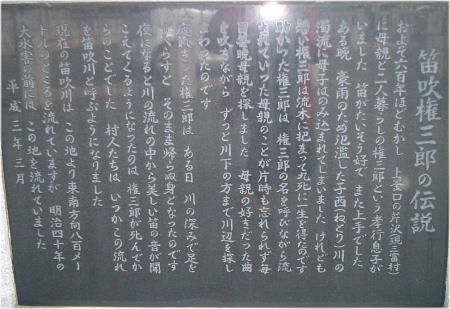 笛吹権三郎の伝説
およそ六百年ほどむかし 上釜口の芹沢(現三富村)
に母親と二人暮らしの権三郎という孝行息子が
いました 笛がたいそう好で また上手でした
ある晩 豪雨のため氾濫した子酉(ねとり)川の
濁流に母子はのみ込まれてしまいました けれども
権三郎は流木に把まって九死に一生を得たのです
助かった権三郎は 権三郎の名を呼びながら流
されていった母親のことが片時も忘れられず毎
日毎晩母親を探しました 母親の好きだった曲
を吹きながら ずっと川下の方まで川辺を探し
まわったのです
疲れきった権三郎は ある日 川の深みで足を
すべらすと そのまま帰らぬ身となったのです
夜になると川の流れの中から美しい笛の音が聞
こえてくるようになったのは 権三郎が死んでか
らのことでした 村人たちは いつかこの流れ
を笛吹川と呼ぶようになりました
現在の笛吹川は この地より東南方向八百メー
トルのところを流れていますが 明治四十年の
大水害の前には この地を流れていました
平成三年三月